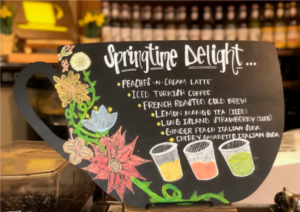 Springtime Delight...
• PEACHES-N-CREAM LATTE
• ICED TURKISH COFFEE
• FRENCH ROASTED COLD BREW
• LEMON MANGO TEA (ICED)
• LONG ISLAND STRAWBERRY (ICED)
• GINGER PEACH ITALIAN SODA
• CHERRY AMARETTO ITALIAN SODA